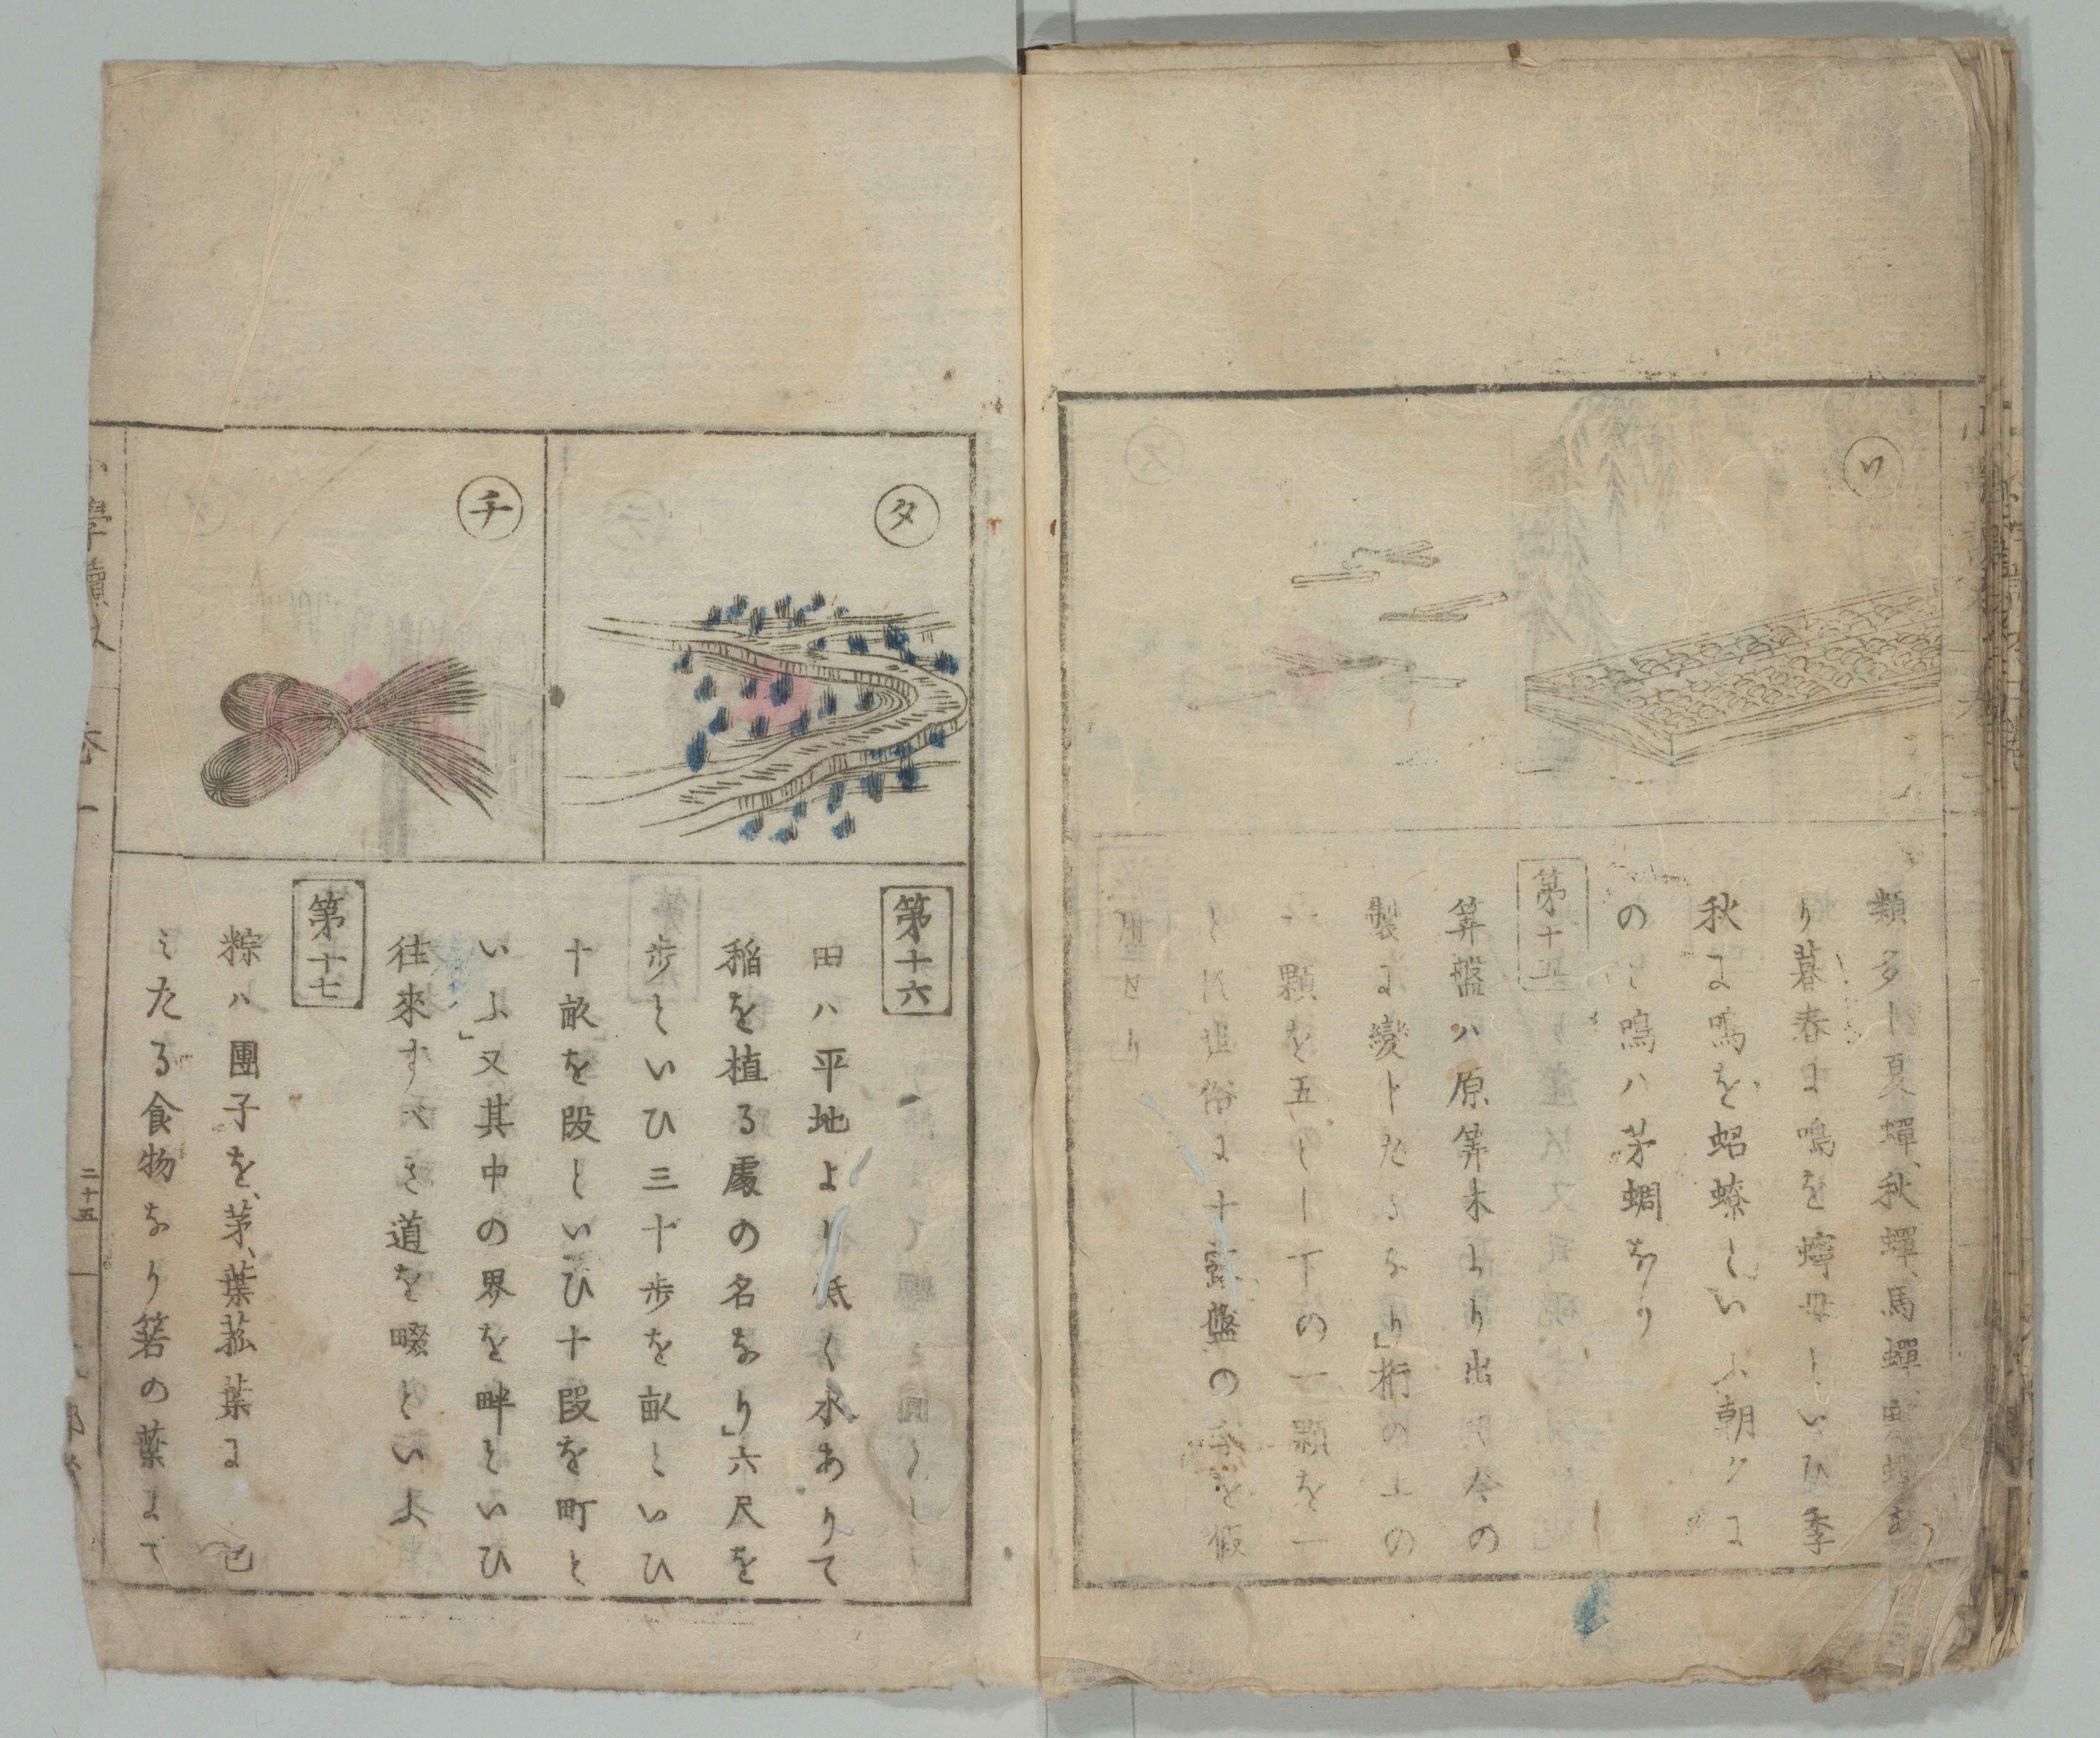 類多し夏蟬、秋蟬、馬蟬、
り暮春に鳴を蟀母といひ季
秋に鳴を蛁蟟といふ朝夕に
のミ鳴ハ茅蜩なり
第十五
筭盤ハ原筭木より出て今の
製に變したるなり」桁の上の
一顆を五とし下の一顆を一
世俗に十露盤の字を假
用せり
タ
第十六
田ハ平地より低く水ありて
稲を植る處の名なり」六尺を
歩といひ三十歩を畝といひ
十畝を段といひ十段を町と
いふ」又其中の界を畔といひ
往來すべき道を畷といふ
チ
第十七
粽ハ團子を、茅、葉菰葉に
したる食物なり箬の葉にて
學讀
二十五